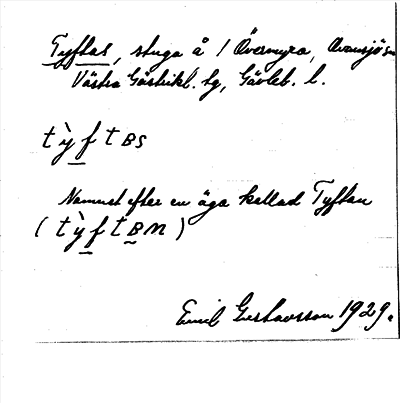 Tyftas, stuga å 1 Övermyra, Ovansjö sn
Västra Gästrikl. tg, Gävleb. l.
t ỳ f t BS
Namnet efter en äga kallad Tyftan
( t ỳ f t B M )
Emil Gustavsson 1929.